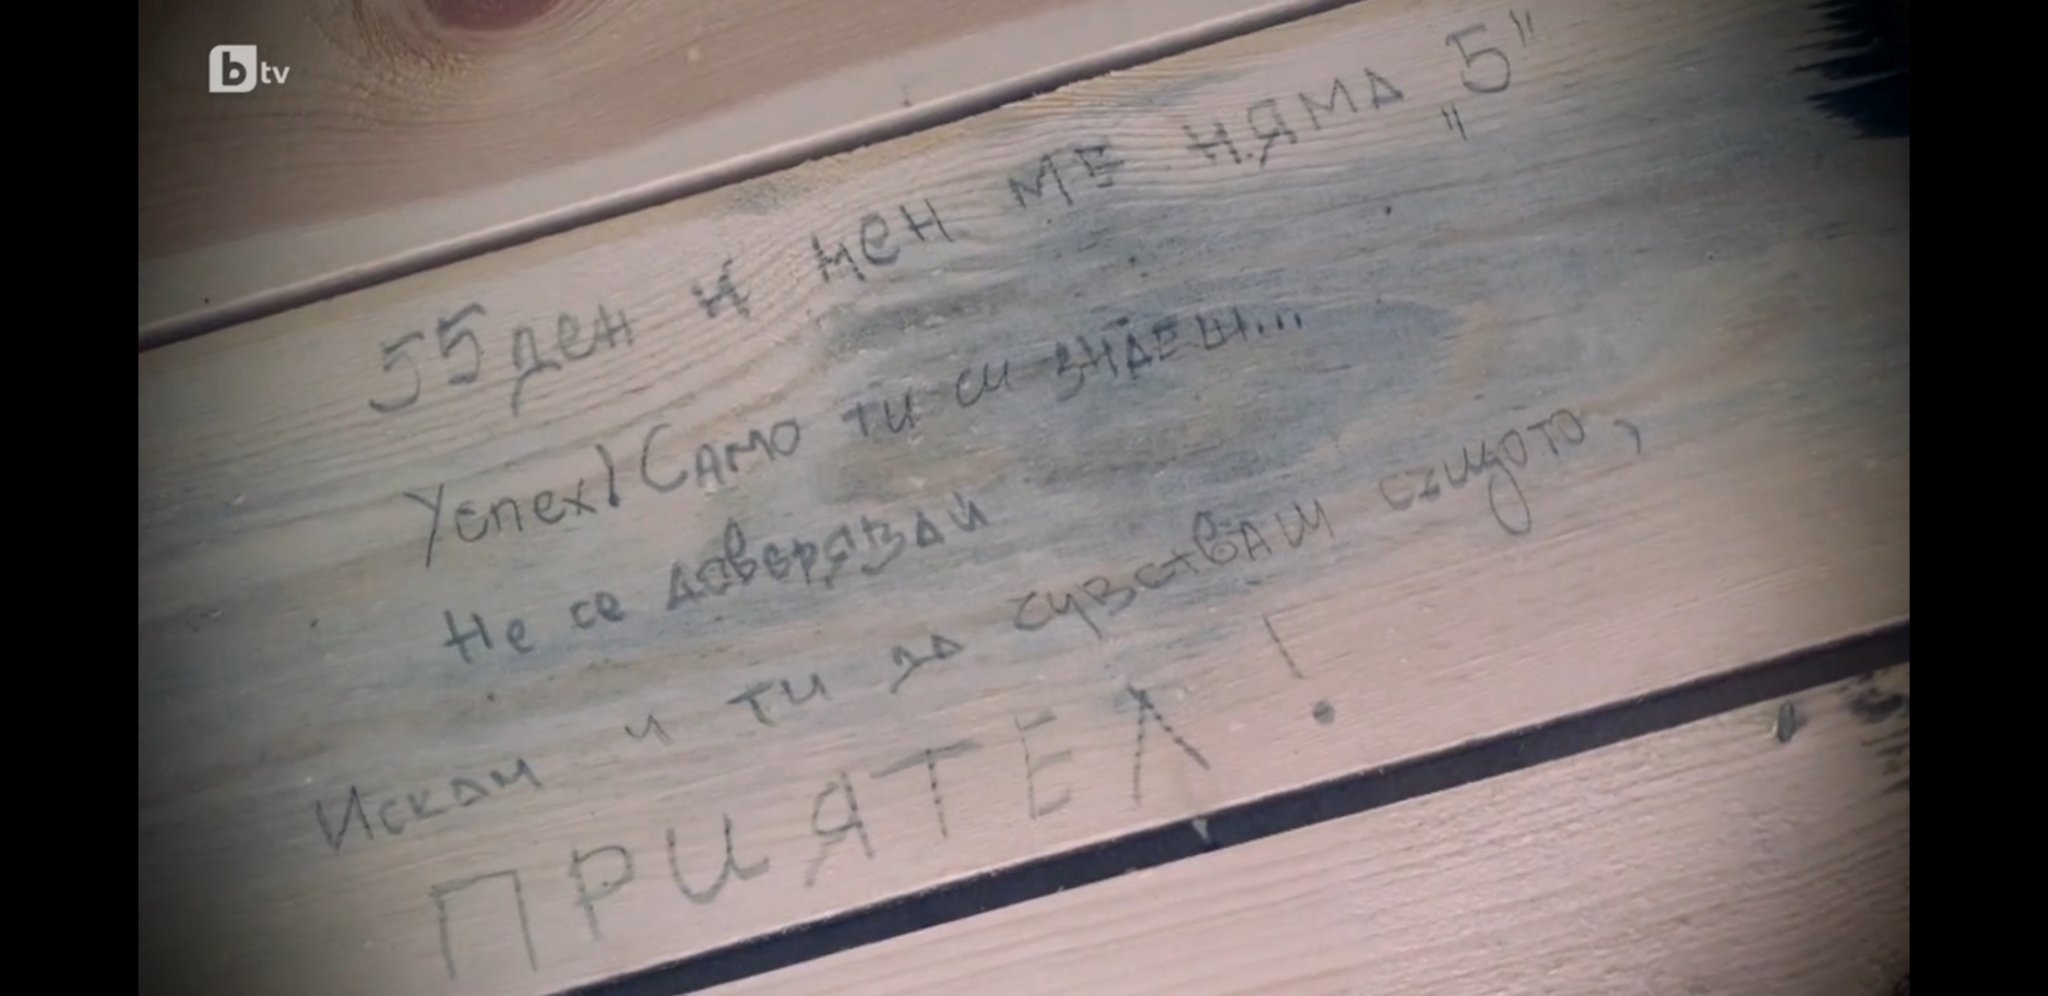 btv
55 ден и мен ме няма „Б"
Успех! Само ти си знаеш...
Не се доверявай
Искам и ти да чувстваш същото,
ПРИЯТЕЛ!